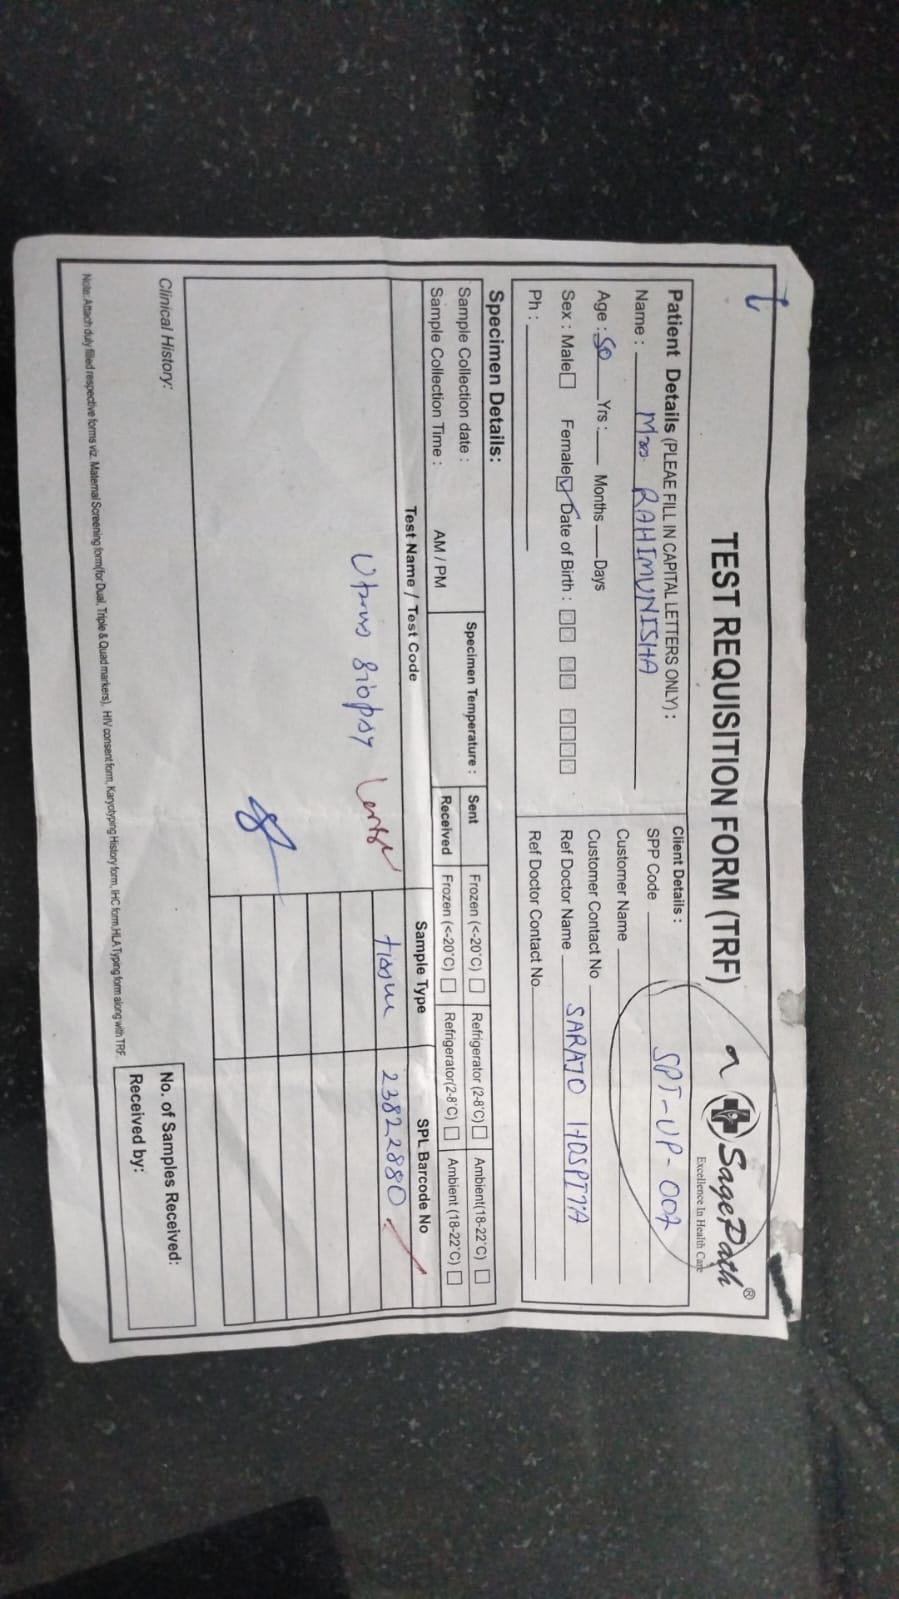 TEST REQUISITION FORM (TRF)
SagePath®
Excellence In Health Care
Patient Details (PLEAE FILL IN CAPITAL LETTERS ONLY) :
Name : Mrs. RAHIMUNISHA
Age : 50 Yrs : Months Days
Sex : Male Female Date of Birth :
Ph :
Client Details :
SPP Code SPT-UP-007
Customer Name
Customer Contact No
Ref Doctor Name SARAJO
Ref Doctor Contact No
Specimen Details:
Sample Collection date :
Sample Collection Time : AM / PM
Specimen Temperature :
Sent Frozen (<-20°C) Refrigerator (2-8°C) Ambient(18-22°C)
Received Frozen (<-20°C) Refrigerator(2-8°C) Ambient (18-22°C)
Test Name / Test Code Sample Type SPL Barcode No
Uterus Biopsy Large tissue 23822880
Clinical History:
No. of Samples Received:
Received by:
Note: Attach duly filled respective forms viz. Maternal Screening form(for Dual, Triple & Quad markers), HIV consent form, Karyotyping History form, IHC form,HLA Typing form along with TRF.